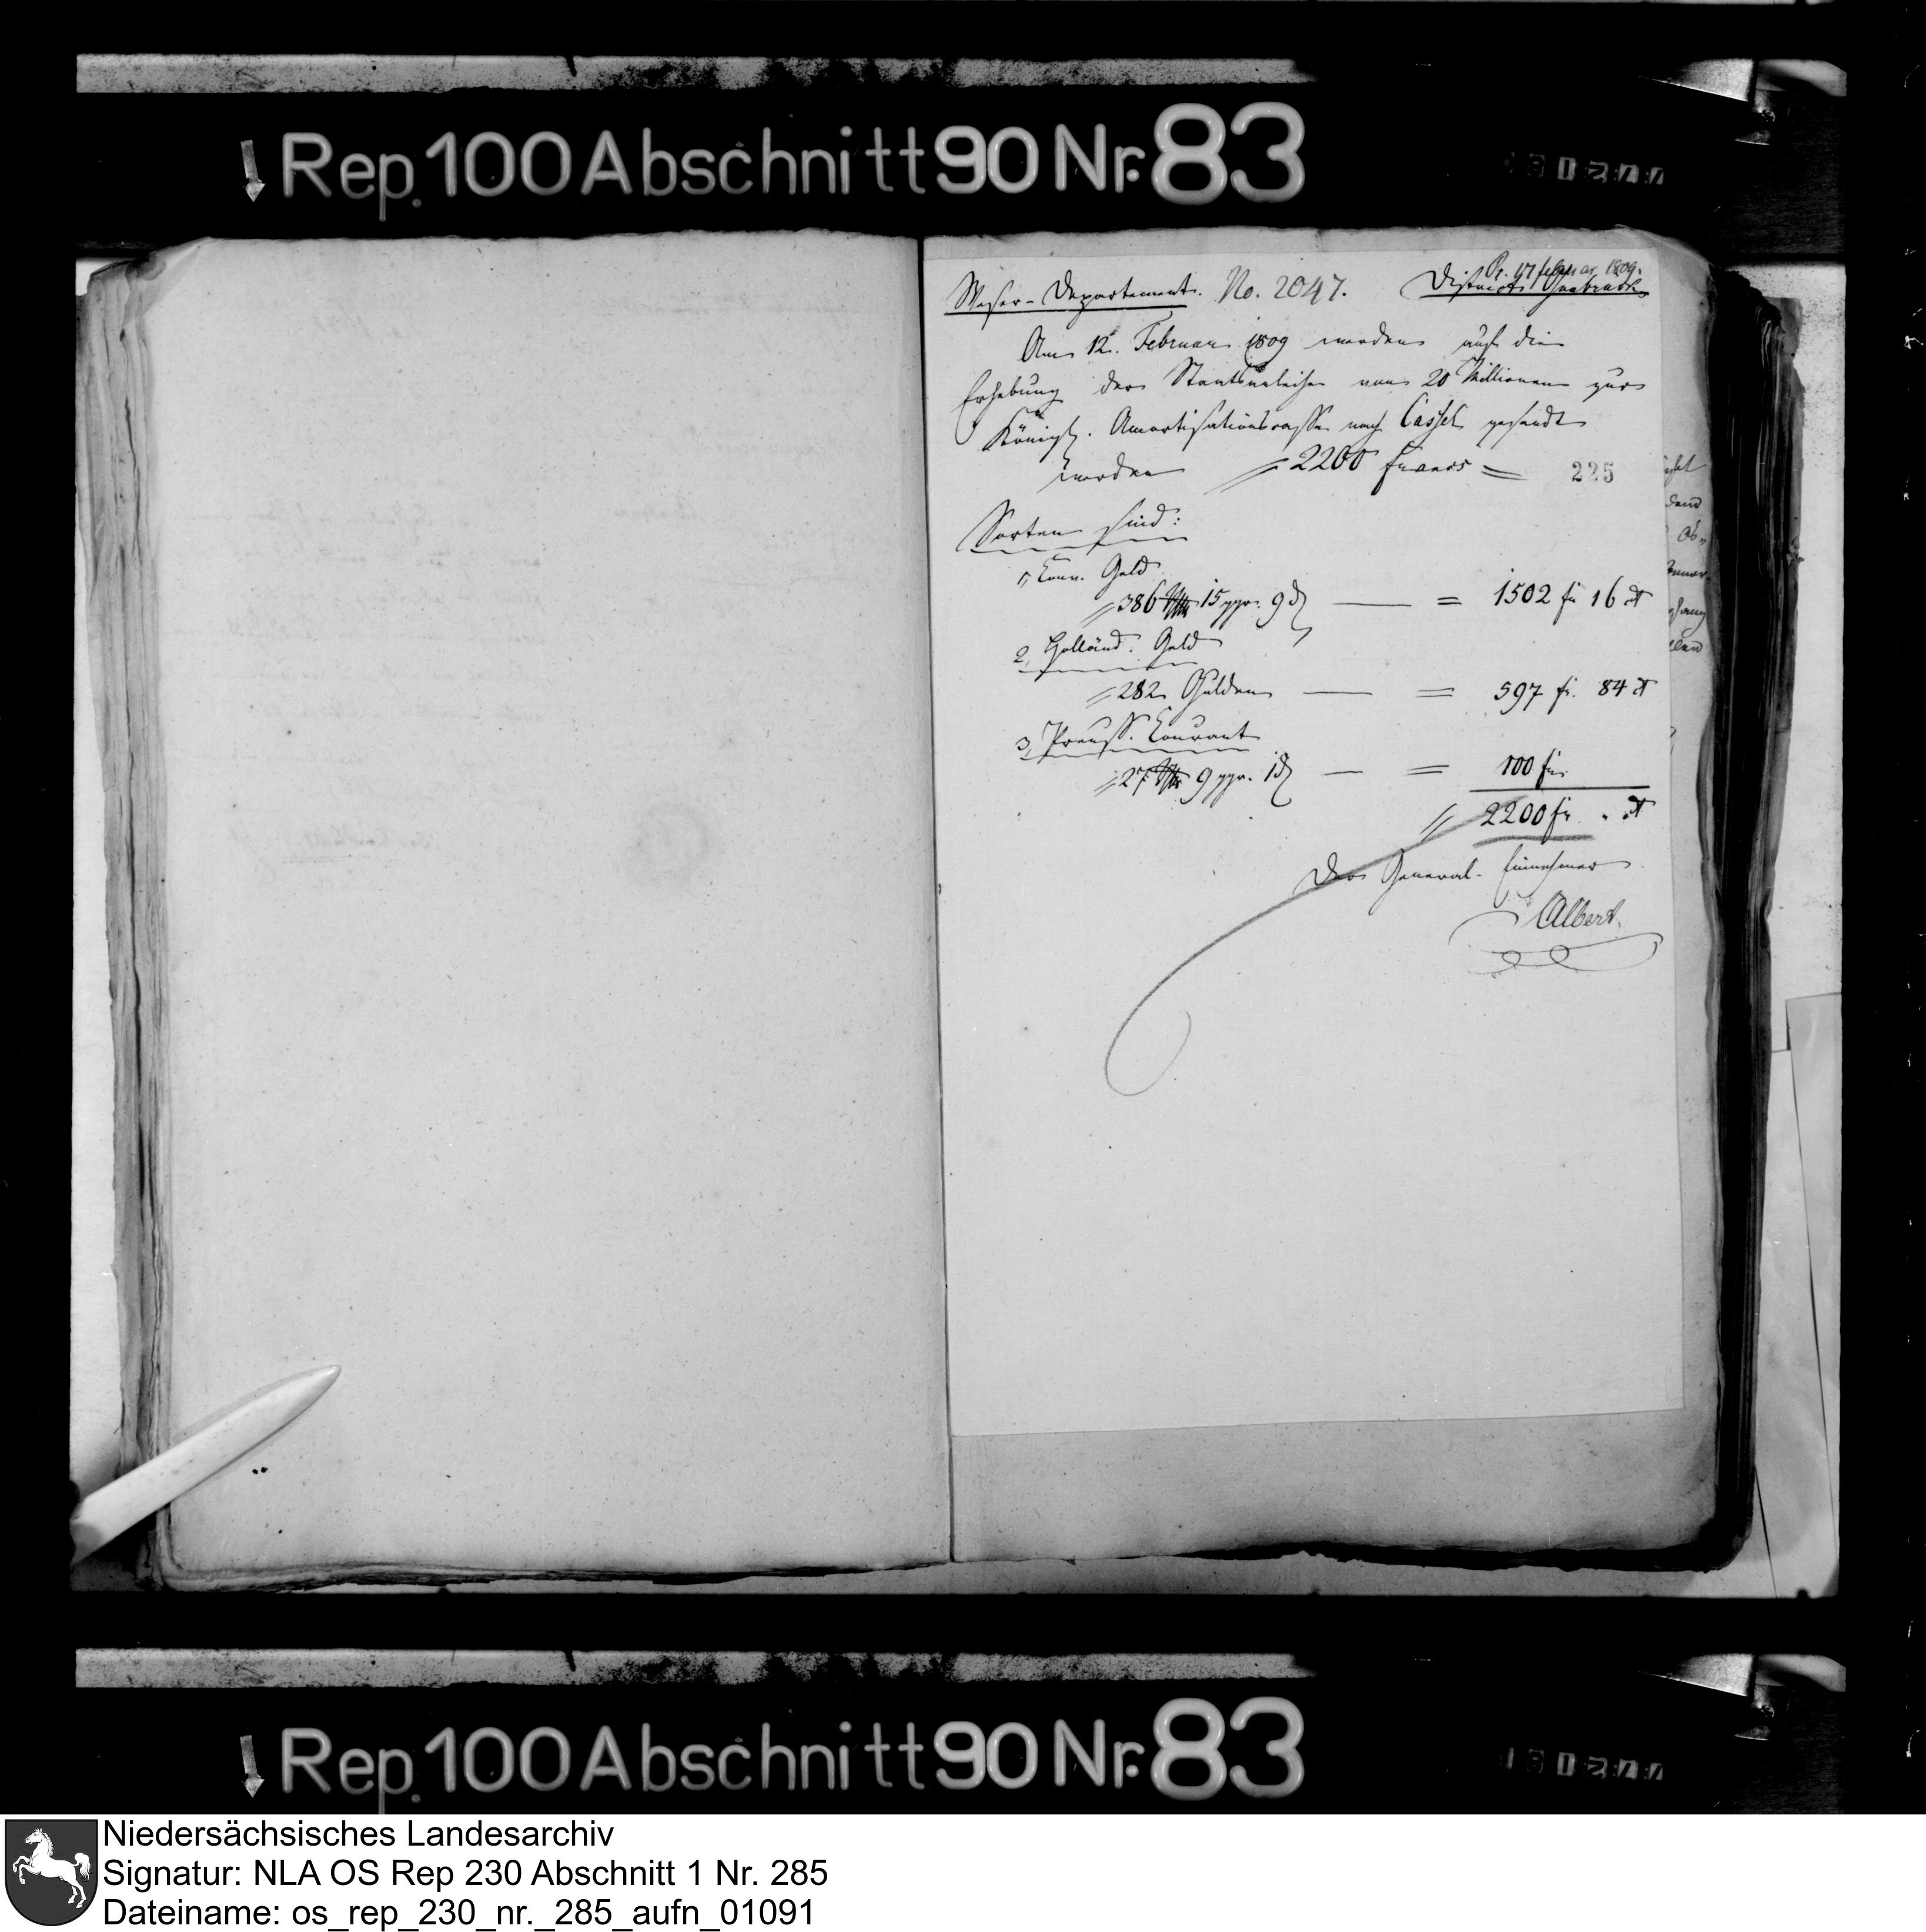 Rep. 100 Abschnitt 90 Nr. 83
Pr. 17 februar 1809.
Weser-Departement. No. 2047. District Osnabrück
Am 12. Februar 1809 werden auf die
Erhebung der Staatsanleihe von 20 Millionen zur
Königl. Amortisationscasse nach Cassel gesandt
worden 2200 francs = 225
Sorten sind:
1, Conv. Geld
386 Rthlr 15 ggr. 9 d — = 1502 fr 16 ct
2, Holländ. Geld
282 Gulden — = 597 fr. 84 ct
3, Preuss. Courant
27 Rthlr 9 ggr. 1 d — = 100 fr.
2200 fr. " ct
Der General-Einnehmer
Albert
Rep. 100 Abschnitt 90 Nr. 83
Niedersächsisches Landesarchiv
Signatur: NLA OS Rep 230 Abschnitt 1 Nr. 285
Dateiname: os_rep_230_nr._285_aufn_01091